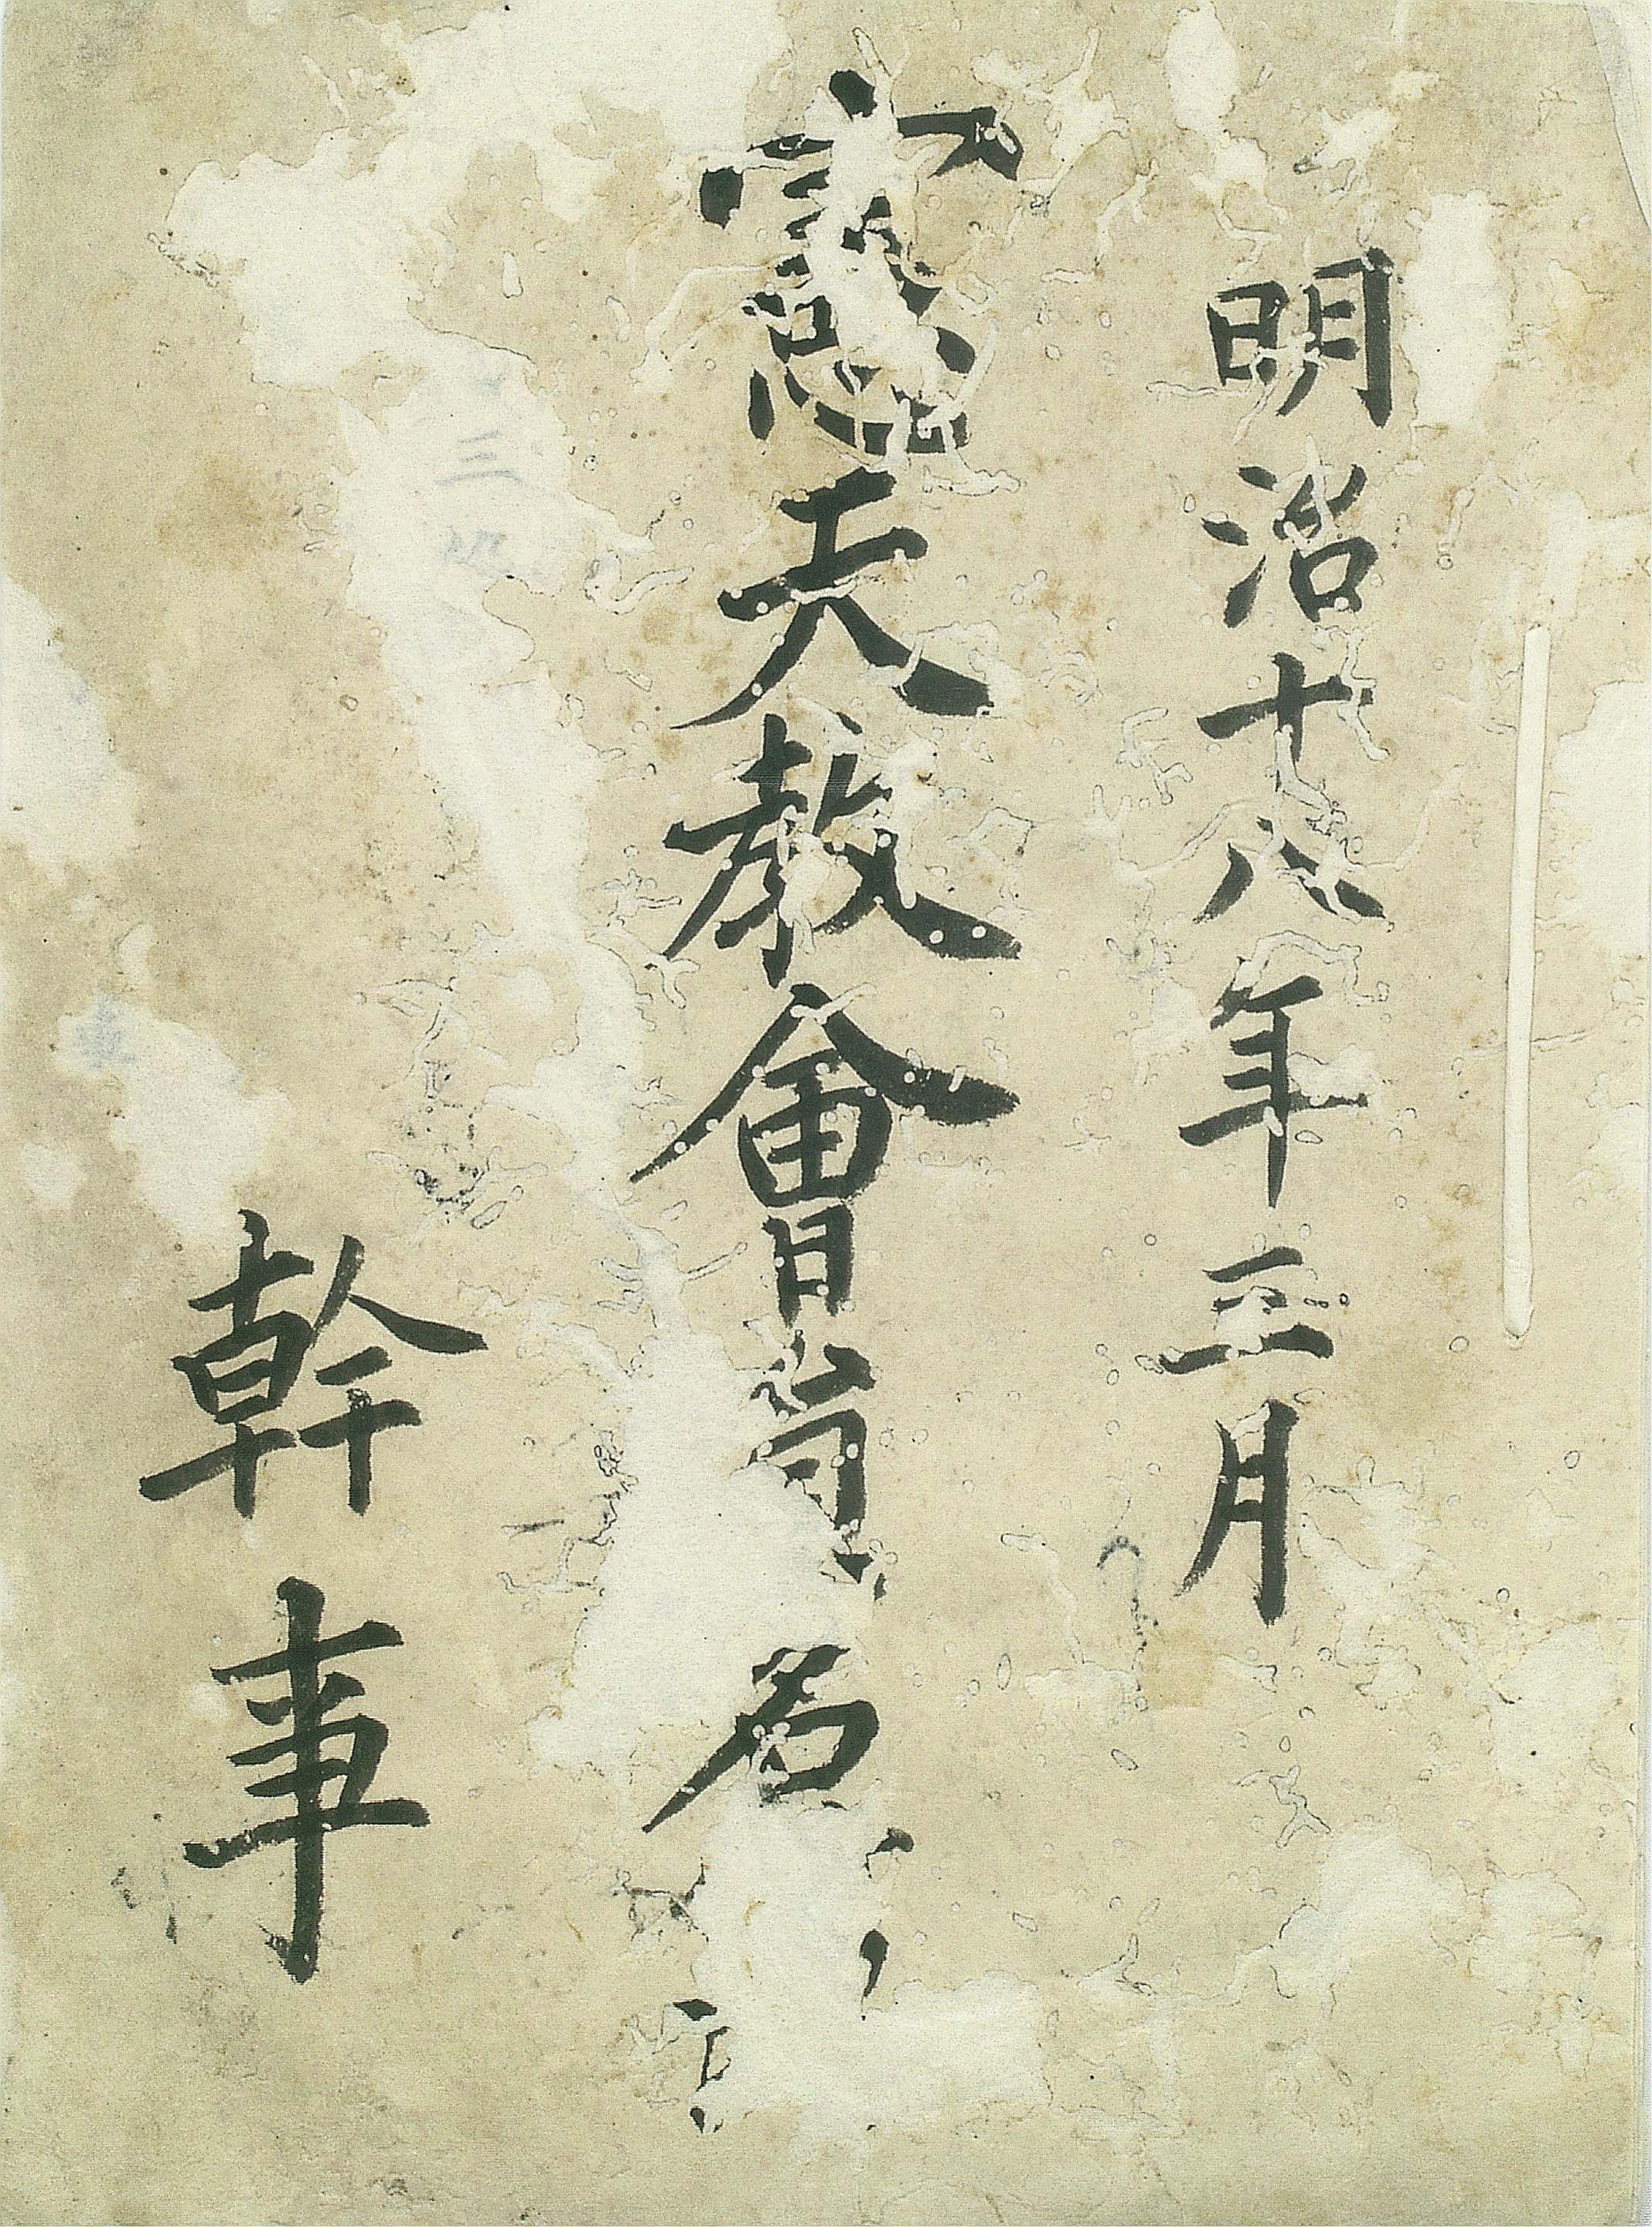 明治十八年三月
憲天教會員名
幹事